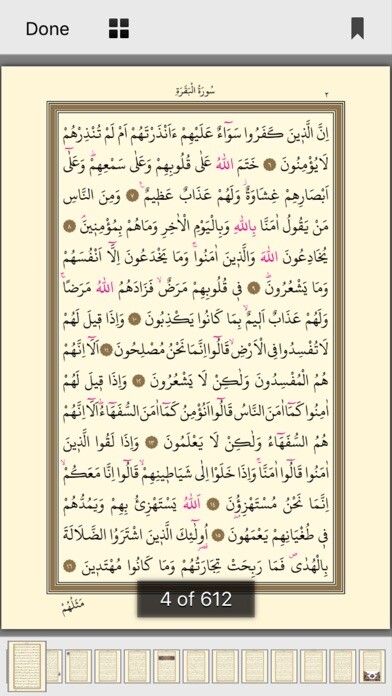 Done
سُورَةُ الْبَقَرَةِ
٢
اِنَّ الَّذ۪ينَ كَفَرُوا سَوَٓاءٌ عَلَيْهِمْ ءَاَنْذَرْتَهُمْ اَمْ لَمْ تُنْذِرْهُمْ
لَا يُؤْمِنُونَ ٦ خَتَمَ اللّٰهُ عَلٰى قُلُوبِهِمْ وَعَلٰى سَمْعِهِمْۜ وَعَلٰٓى
اَبْصَارِهِمْ غِشَاوَةٌۘ وَلَهُمْ عَذَابٌ عَظ۪يمٌ۟ ٧ وَمِنَ النَّاسِ
مَنْ يَقُولُ اٰمَنَّا بِاللّٰهِ وَبِالْيَوْمِ الْاٰخِرِ وَمَا هُمْ بِمُؤْمِن۪ينَۢ ٨
يُخَادِعُونَ اللّٰهَ وَالَّذ۪ينَ اٰمَنُواۚ وَمَا يَخْدَعُونَ اِلَّٓا اَنْفُسَهُمْ
وَمَا يَشْعُرُونَۜ ٩ ف۪ي قُلُوبِهِمْ مَرَضٌۙ فَزَادَهُمُ اللّٰهُ مَرَضًاۚ
وَلَهُمْ عَذَابٌ اَل۪يمٌۙ بِمَا كَانُوا يَكْذِبُونَ ١٠ وَاِذَا ق۪يلَ لَهُمْ
لَا تُفْسِدُوا فِي الْاَرْضِۙ قَالُٓوا اِنَّمَا نَحْنُ مُصْلِحُونَ ١١ اَلَٓا اِنَّهُمْ
هُمُ الْمُفْسِدُونَ وَلٰكِنْ لَا يَشْعُرُونَ ١٢ وَاِذَا ق۪يلَ لَهُمْ
اٰمِنُوا كَمَٓا اٰمَنَ النَّاسُ قَالُٓوا اَنُؤْمِنُ كَمَٓا اٰمَنَ السُّفَهَٓاءُۜ اَلَٓا اِنَّهُمْ
هُمُ السُّفَهَٓاءُ وَلٰكِنْ لَا يَعْلَمُونَ ١٣ وَاِذَا لَقُوا الَّذ۪ينَ
اٰمَنُوا قَالُٓوا اٰمَنَّاۚ وَاِذَا خَلَوْا اِلٰى شَيَاط۪ينِهِمْۙ قَالُٓوا اِنَّا مَعَكُمْۙ
اِنَّمَا نَحْنُ مُسْتَهْزِؤُ۫نَ ١٤ اَللّٰهُ يَسْتَهْزِئُ بِهِمْ وَيَمُدُّهُمْ
ف۪ي طُغْيَانِهِمْ يَعْمَهُونَ ١٥ اُو۬لٰٓئِكَ الَّذ۪ينَ اشْتَرَوُا الضَّلَالَةَ
بِالْهُدٰىۖ فَمَا رَبِحَتْ تِجَارَتُهُمْ وَمَا كَانُوا مُهْتَد۪ينَ ١٦
مَثَلُهُمْ
4 of 612